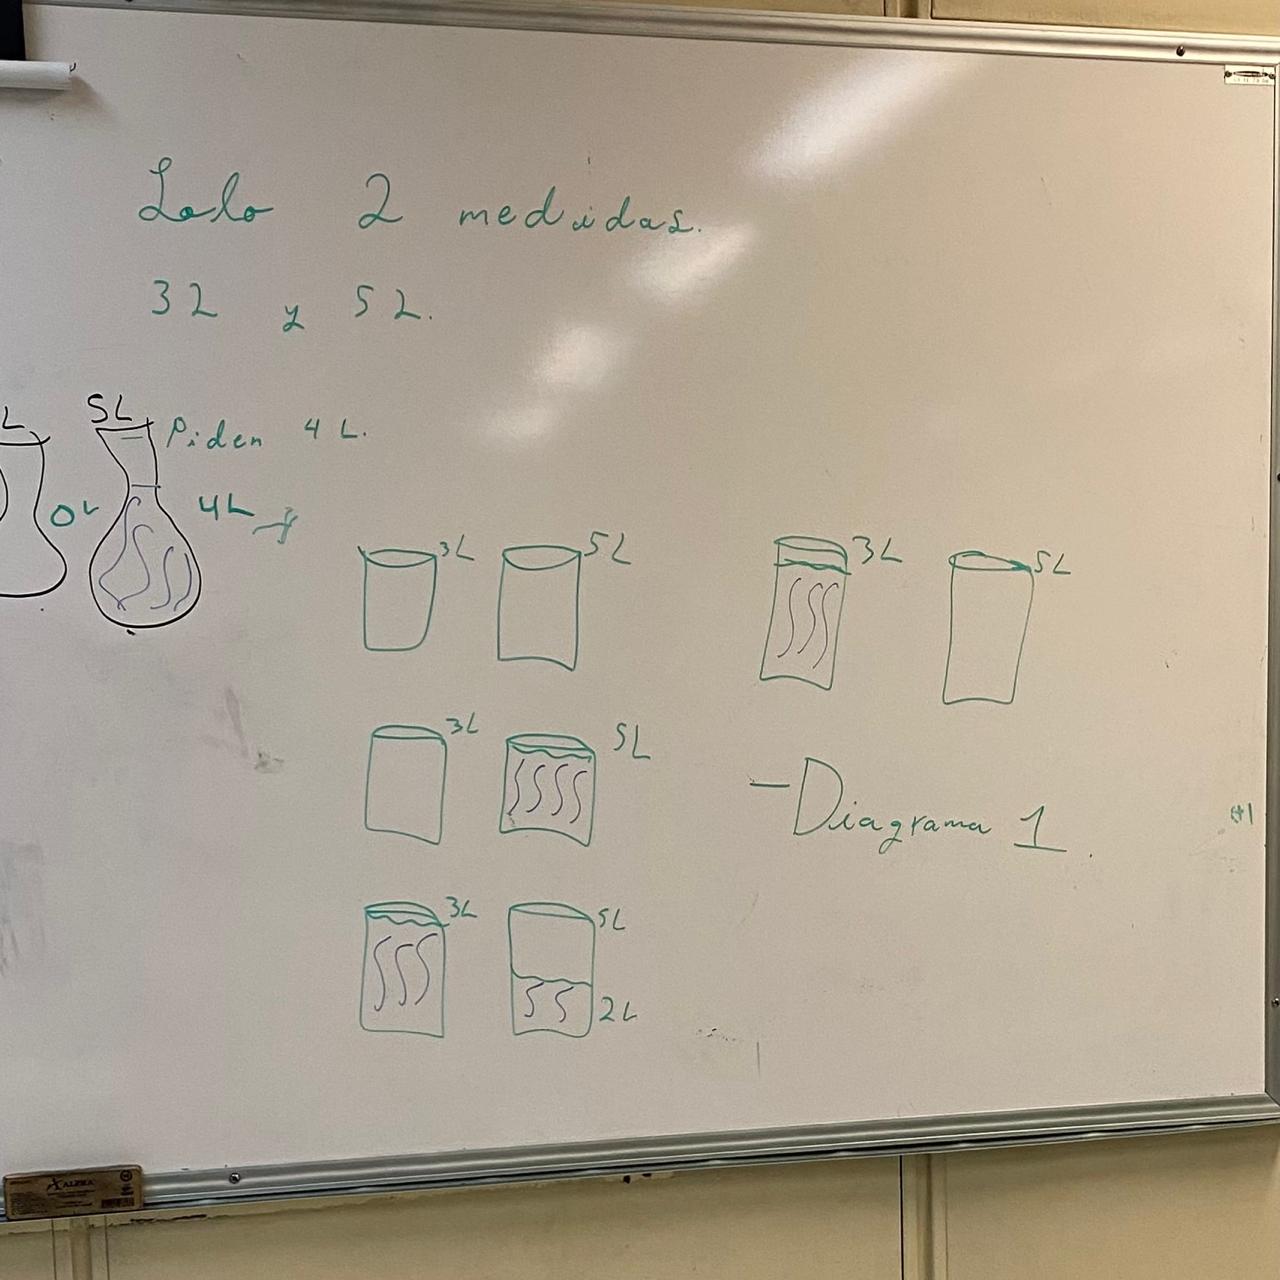 Lolo 2 medidas.
3L y 5L.
L
5L
Piden 4 L.
0L
4L
3L
5L
3L
5L
3L
5L
- Diagrama 1.
3L
5L
2L
ALPHA